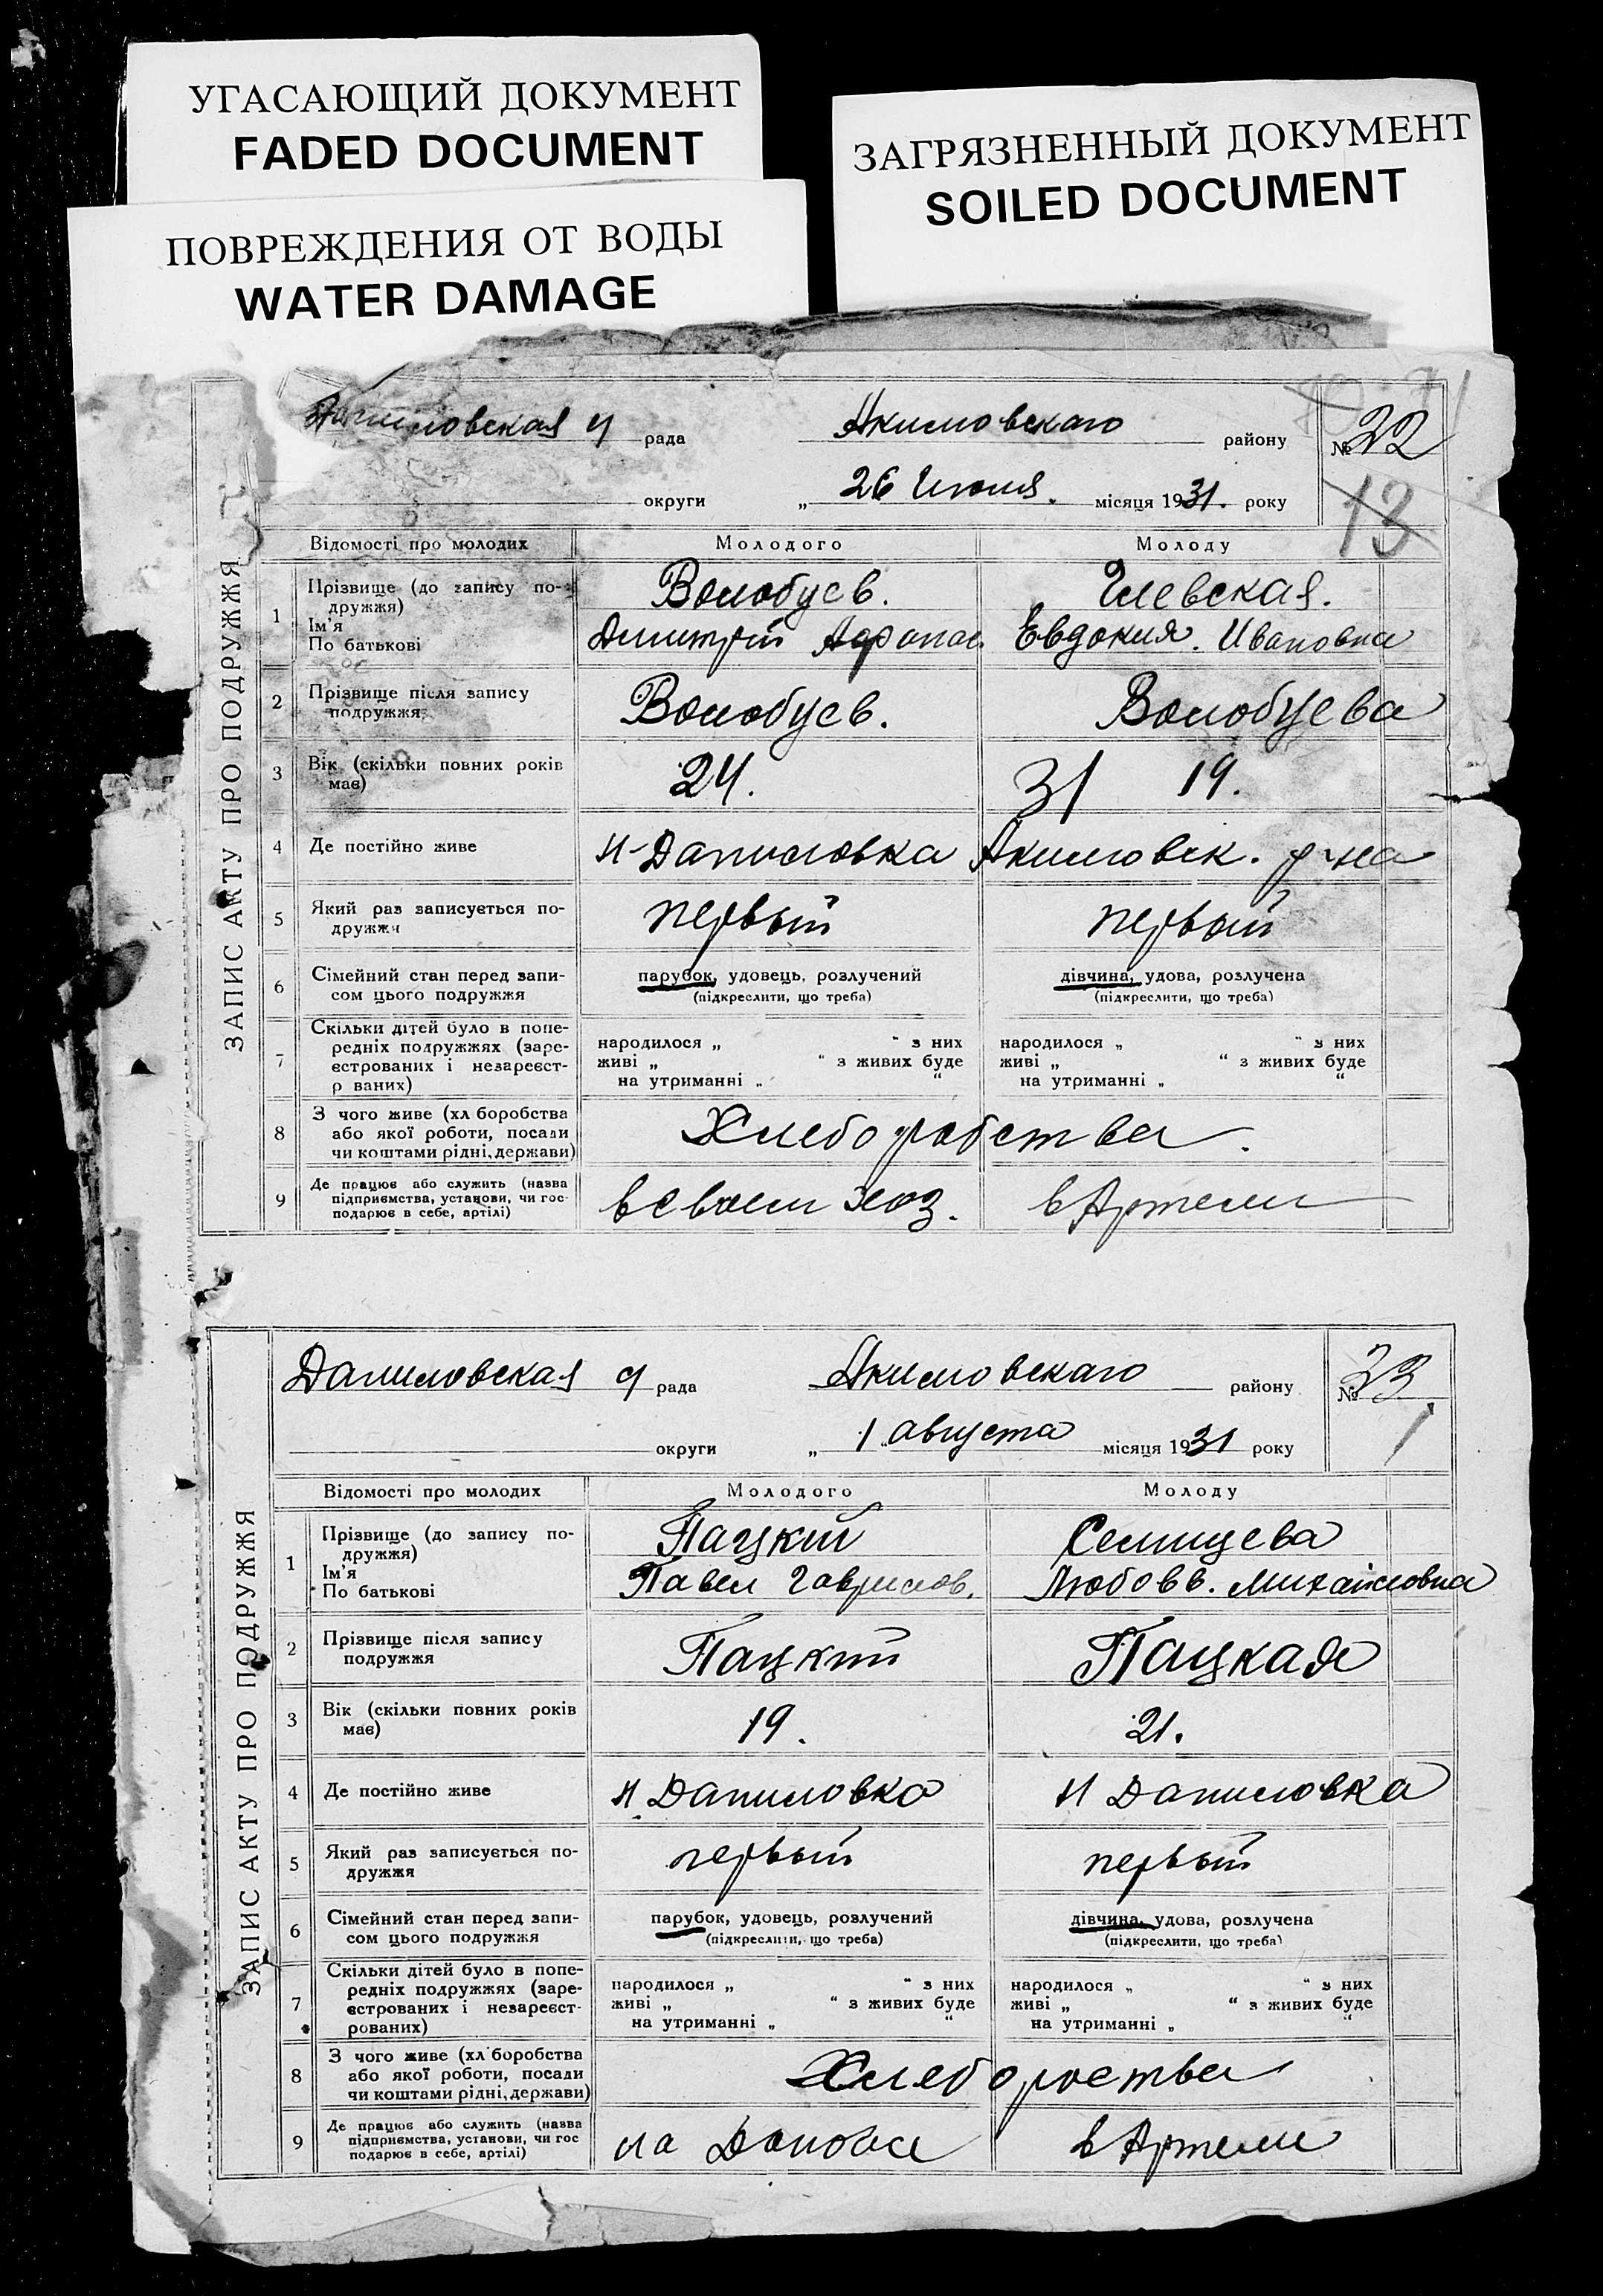 УГАСАЮЩИЙ ДОКУМЕНТ
FADED DOCUMENT
ЗАГРЯЗНЕННЫЙ ДОКУМЕНТ
SOILED DOCUMENT
ПОВРЕЖДЕНИЯ ОТ ВОДЫ
WATER DAMAGE
ЗАПИС АКТУ ПРО ПОДРУЖЖЯ
рада Акимовскаго району № 32
округи „ 26 Июля. місяця 1931. року
13
Відомості про молодих Молодого Молоду
1 Прізвище (до запису по- Волобуев.
дружжя)
Ім'я
По батькові Димитрий Афанас. Евдокия. Ивановна
2 Прізвище після запису Волобуев. Волобуева
подружжя
3 Вік (скільки повних років 24. 31 19.
має)
4 Де постійно живе Н-Даниловка Акимовск. р-на
5 Який раз записується по- первый первый
дружжя
6 Сімейний стан перед запи- парубок, удовець, розлучений дівчина, удова, розлучена
сом цього подружжя (підкреслити, що треба) (підкреслити, що треба)
7 Скільки дітей було в попе-
редніх подружжях (заре- народилося „ “ з них народилося „ “ з них
єстрованих і незареєст- живі „ “ з живих буде живі „ “ з живих буде
р ваних) на утриманні „ “ на утриманні „ “
8 З чого живе (хл боробства Хлеборобства.
або якої роботи, посади
чи коштами рідні, держави)
9 Де працює або служить (назва в Своем хоз. в Артели
підприємства, установи, чи гос-
подарює в себе, артілі)
ЗАПИС АКТУ ПРО ПОДРУЖЖЯ
Даниловская рада Акимовскаго району № 33
округи „ 1 “ августа місяця 1931 року
Відомості про молодих Молодого Молоду
1 Прізвище (до запису по- Пацкий Селищева
дружжя)
Ім'я
По батькові Павел Гаврилов. Любовв. Михайловна
2 Прізвище після запису Пацкий Пацкая
подружжя
3 Вік (скільки повних років 19. 21.
має)
4 Де постійно живе Н Даниловка Н Даниловка
5 Який раз записується по- первый первый
дружжя
6 Сімейний стан перед запи- парубок, удовець, розлучений дівчина, удова, розлучена
сом цього подружжя (підкреслити, що треба) (підкреслити, що треба)
7 Скільки дітей було в попе-
редніх подружжях (заре- народилося „ “ з них народилося „ “ з них
єстрованих і незареєст- живі „ “ з живих буде живі „ “ з живих буде
рованих) на утриманні „ “ на утриманні „ “
8 З чого живе (хл боробства
або якої роботи, посади
чи коштами рідні, держави)
9 Де працює або служить (назва на в Артели
підприємства, установи, чи гос
подарює в себе, артілі)